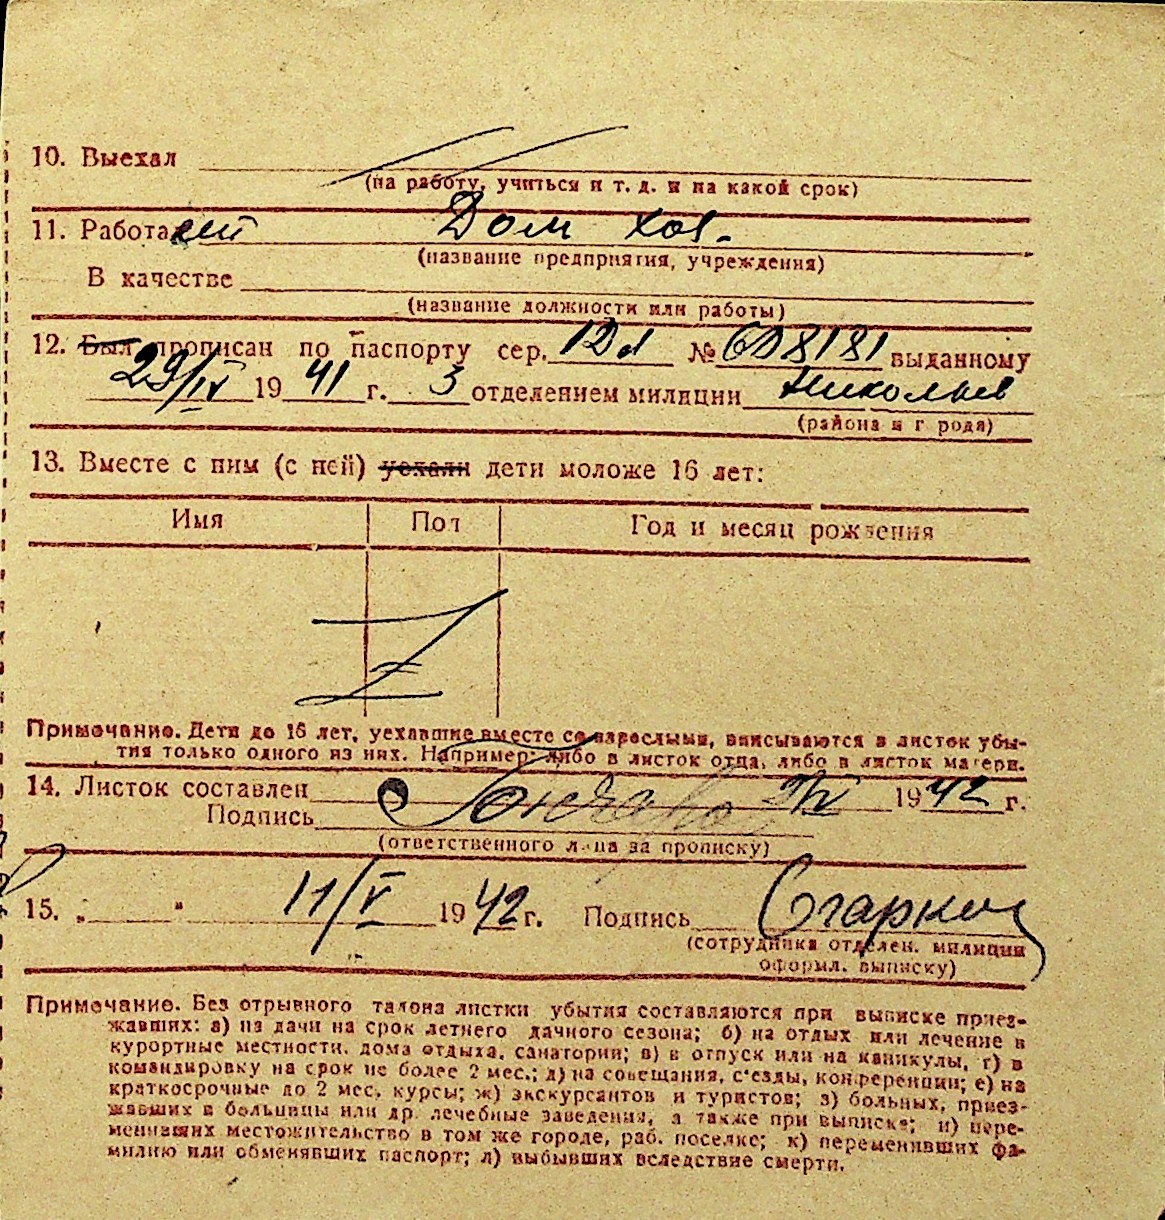 10. Выехал
(на работу, учиться и т. д. и на какой срок)
11. Работает Дом хоз.
(название предприятия, учреждения)
В качестве
(название должности или работы)
12. Был прописан по паспорту сер. № 608181 выданному
29/IV 1941 г. 3 отделением милиции
(района и города)
13. Вместе с ним (с ней) уехали дети моложе 16 лет:
Имя Пол Год и месяц рождения
Примечание. Дети до 16 лет, уехавшие вместе со взрослыми, вписываются в листок убы-
тия только одного из них. Например: либо в листок отца, либо в листок матери.
14. Листок составлен 1942 г.
Подпись
(ответственного лица за прописку)
15. „ " 11/V 1942 г. Подпись
(сотрудника отделен. милиции
оформл. выписку)
Примечание. Без отрывного талона листки убытия составляются при выписке приез-
жавших: а) на дачи на срок летнего дачного сезона; б) на отдых или лечение в
курортные местности, дома отдыха, санатории; в) в отпуск или на каникулы, г) в
командировку на срок не более 2 мес.; д) на совещания, съезды, конференции; е) на
краткосрочные до 2 мес. курсы; ж) экскурсантов и туристов; з) больных, приез-
жавших в больницы или др. лечебные заведения, а также при выписке; и) пере-
менивших местожительство в том же городе, раб. поселке; к) переменивших фа-
милию или обменявших паспорт; л) выбывших вследствие смерти.